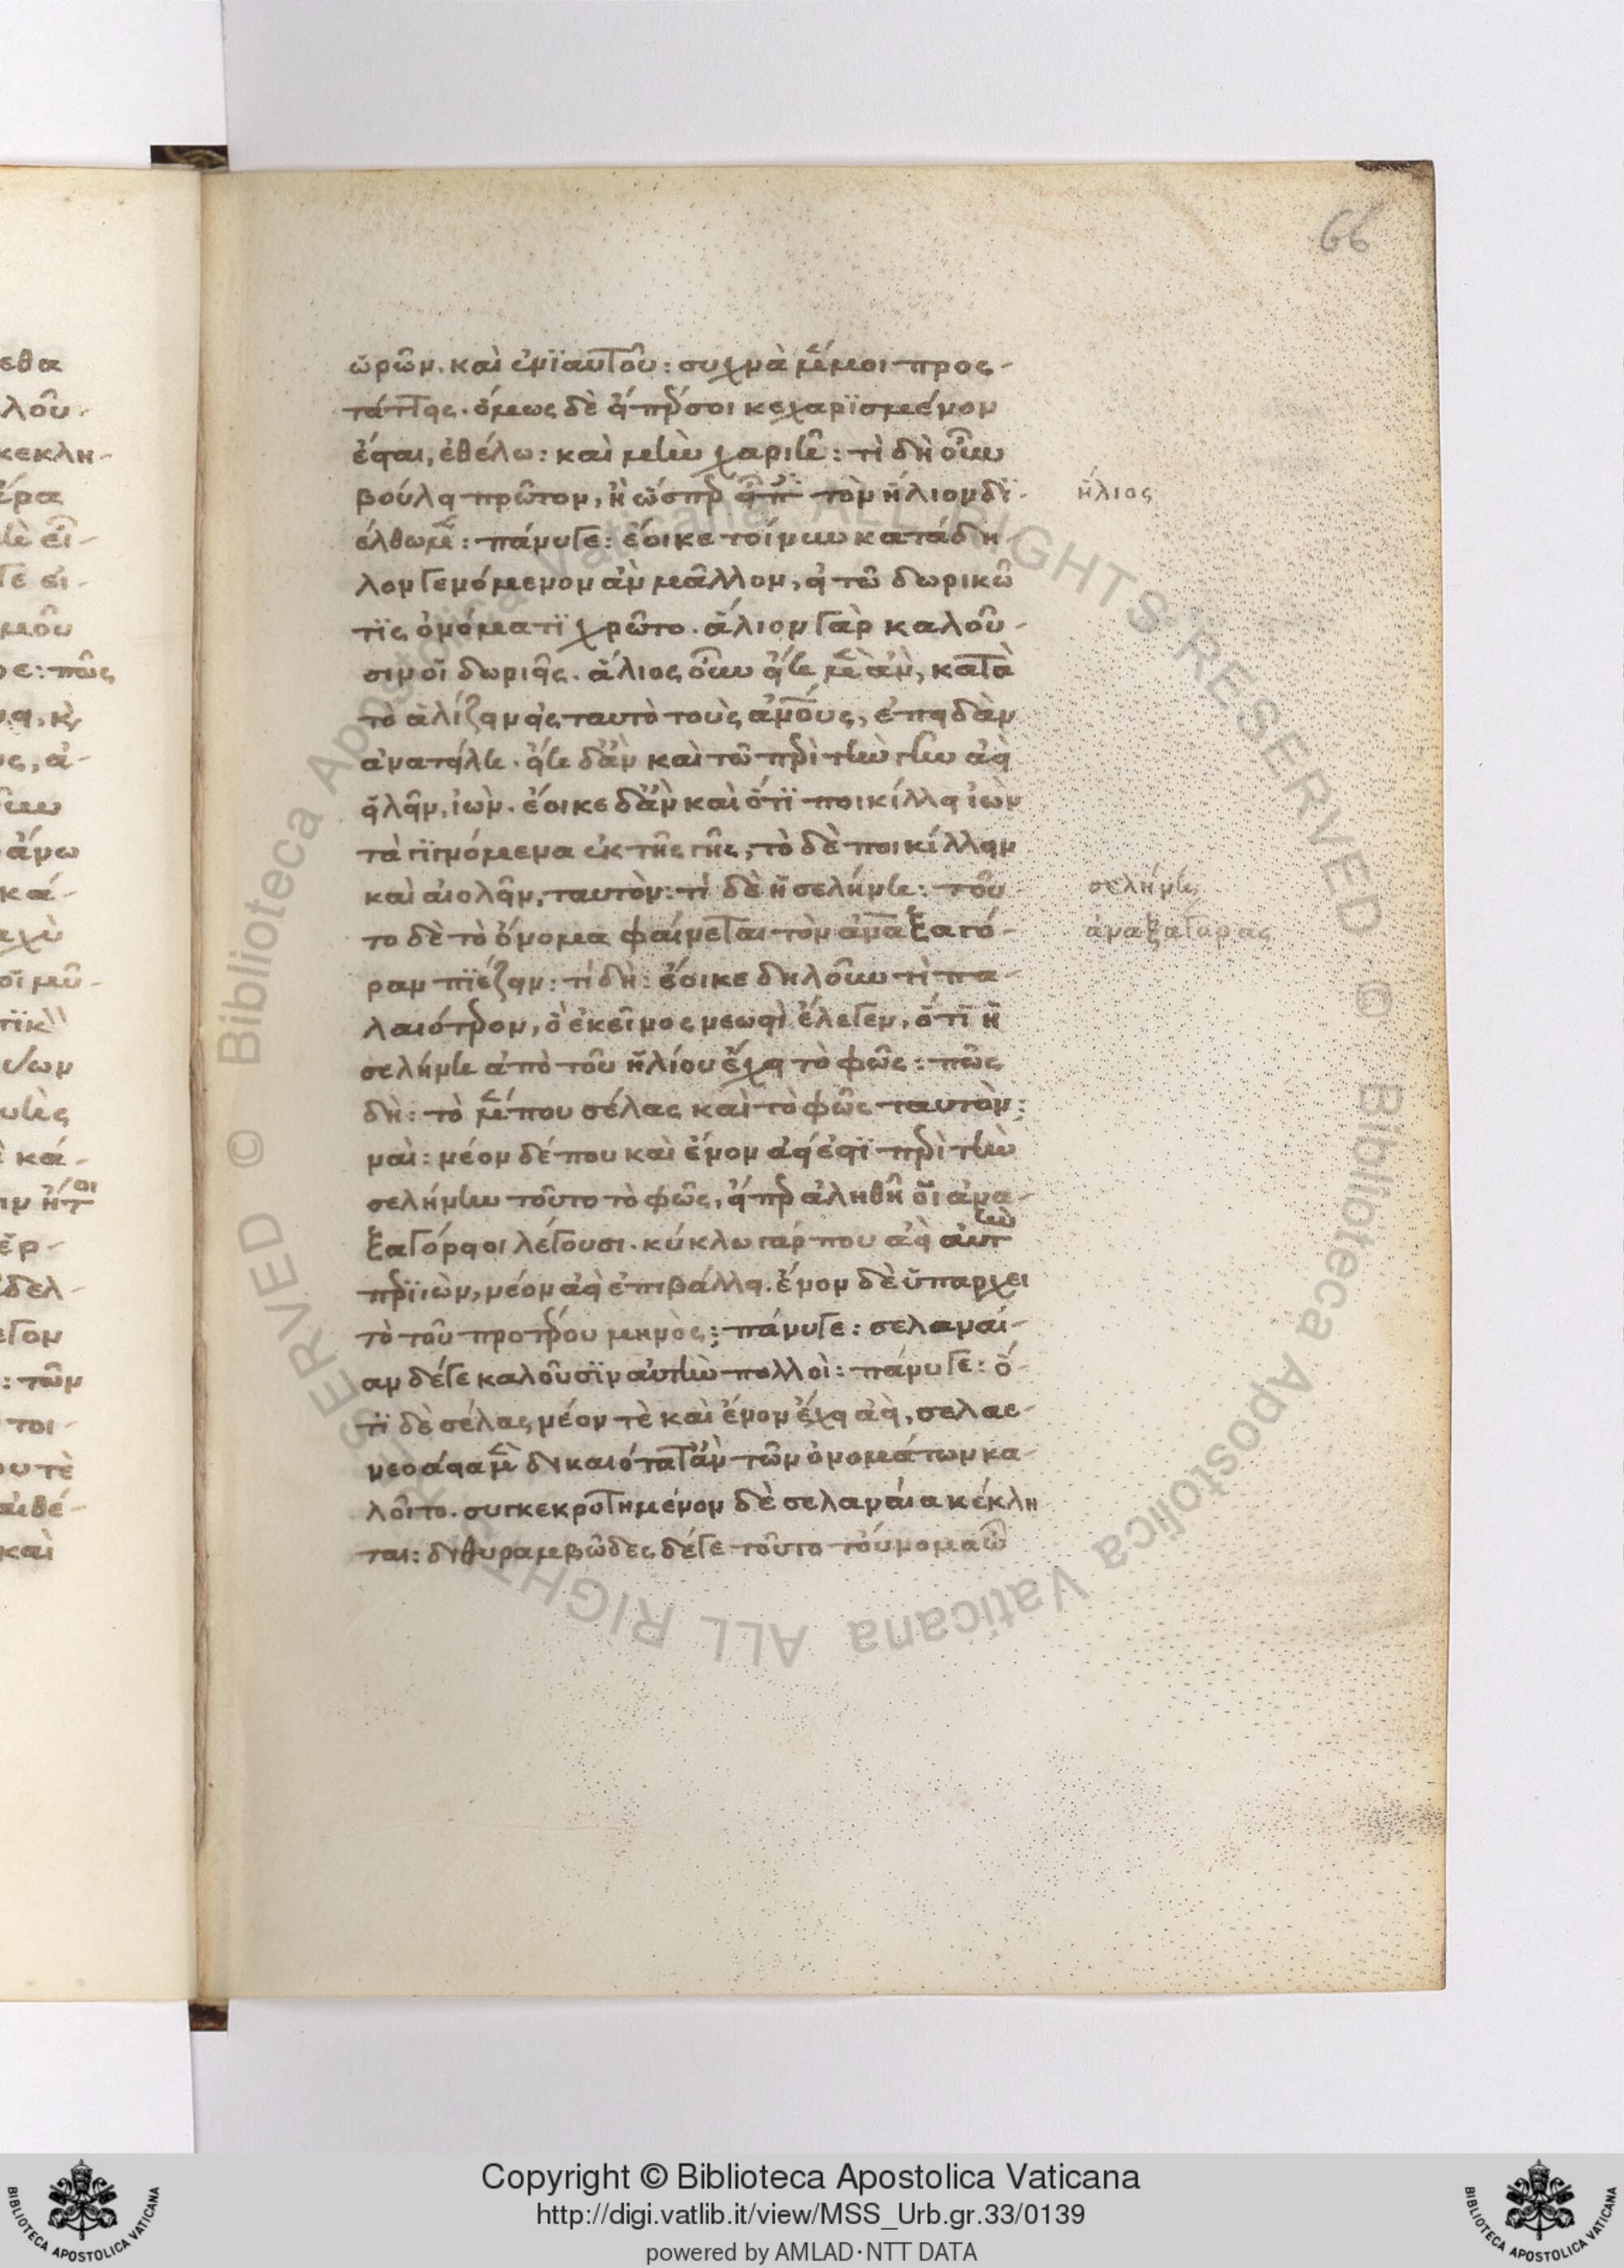 66
ὡρῶν. καὶ ἐνϊαυτοῦ: συχνὰ μέν μοι προς-
τάττεις. ὅμως δὲ εἴπερ σοι κεχαρϊσμένον
ἔσται, ἐθέλω: καὶ μὴν χαριῆ: τί δὴ οὖν
βούλει πρῶτον, ἢ ὥσπερ εἶπες τὸν ἥλιον δϊ-
έλθωμεν: πάνυ γε: ἔοικε τοίνυν κατάδη-
λον γενόμενον ἂν μᾶλλον, εἰ τῶ δωρικῶ
τϊς ὀνόματϊ χρῶτο. ἅλιον γὰρ καλοῦ-
σιν οἱ δωριεῖς. ἅλιος οὖν εἴη μὲν ἂν, κατὰ
τὸ ἁλίζειν εἰς ταυτὸ τοὺς ἀνους, ἐπειδὰν
ἀνατείλη. εἴη δ' ἂν καὶ τῶ περὶ τὴν γῆν ἀεὶ
εἱλεῖν, ἰὼν. ἔοικε δ' ἂν καὶ ὅτϊ ποικίλλει ἰὼν
τὰ γϊγνόμενα ἐκ τῆς γῆς, τὸ δὲ ποικίλλειν
καὶ αἰολεῖν, ταυτὸν: τί δὲ ἡ σελήνη: τοῦ-
το δὲ τὸ ὄνομα φαίνεται τὸν ἀναξαγό-
ραν πϊέζειν: τί δὴ: ἔοικε δηλοῦν τὶ πα-
λαιότερον, ὃ ἐκεῖνος νεωστὶ ἔλεγεν, ὅτϊ ἡ
σελήνη ἀπὸ τοῦ ἡλίου ἔχει τὸ φῶς: πῶς
δὴ: τὸ μέν που σέλας καὶ τὸ φῶς ταυτὸν:
ναὶ: νέον δέ που καὶ ἕνον ἀεί ἐστϊ περὶ τὴν
σελήνην τοῦτο τὸ φῶς, εἴπερ ἀληθῆ οἱ ἀνα-
ξαγόρειοι λέγουσι. κύκλω γάρ που ἀεὶ αὐτὴν
περιϊὼν, νέον ἀεὶ ἐπιβάλλει. ἕνον δὲ ὑπάρχει
τὸ τοῦ προτέρου μηνὸς: πάνυ γε: σελαναί-
αν δέ γε καλοῦσϊν αὐτὴν πολλοὶ: πάνυ γε: ὅ-
τϊ δὲ σέλας νέον τὲ καὶ ἕνον ἔχει ἀεὶ, σελαε-
νεοάεια μὲν δικαιότατ' ἂν τῶν ὀνομάτων κα-
λοῖτο. συγκεκροτημένον δὲ σελαναία κέκλη
ται: διθυραμβῶδες δέ γε τοῦτο τοὔνομα ὦ
ἥλιος
σελήνη
ἀναξαγόρας
Copyright © Biblioteca Apostolica Vaticana
http://digi.vatlib.it/view/MSS_Urb.gr.33/0139
powered by AMLAD·NTT DATA